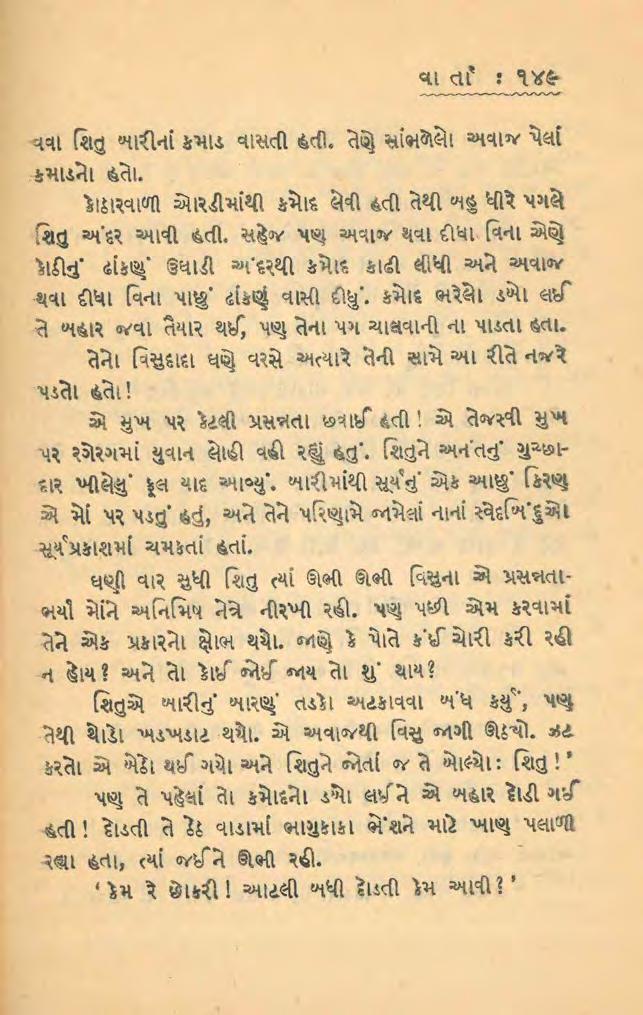 વાર્તા : ૧૪૯
વવા શિતુ બારીનાં કમાડ વાસતી હતી. તેણે સાંભળેલો અવાજ પેલાં
કમાડનો હતો.
કોઠારવાળી ઓરડીમાંથી કમોદ લેવી હતી તેથી બહુ ધીરે પગલે
શિતુ અંદર આવી હતી. સહેજ પણ અવાજ થવા દીધા વિના એણે
કોઠીનું ઢાંકણું ઉઘાડી અંદરથી કમોદ કાઢી લીધી અને અવાજ
થવા દીધા વિના પાછું ઢાંકણું વાસી દીધું. કમોદ ભરેલો ડબો લઈ
તે બહાર જવા તૈયાર થઈ, પણ તેના પગ ચાલવાની ના પાડતા હતા.
તેનો વિસુદાદા ઘણે વરસે અત્યારે તેની સામે આ રીતે નજરે
પડતો હતો!
એ મુખ પર કેટલી પ્રસન્નતા છવાઈ હતી! એ તેજસ્વી મુખ
પર રગેરગમાં યુવાન લોહી વહી રહ્યું હતું. શિતુને અનંતનું ગુચ્છા-
દાર ખીલેલું ફૂલ યાદ આવ્યું. બારીમાંથી સૂર્યનું એક આછું કિરણ
એ મોં પર પડતું હતું, અને તેને પરિણામે જામેલાં નાનાં સ્વેદબિંદુઓ
સૂર્યપ્રકાશમાં ચમકતાં હતાં.
ઘણી વાર સુધી શિતુ ત્યાં ઊભી ઊભી વિસુના એ પ્રસન્નતા-
ભર્યા મોંને અનિમિષ નેત્રે નીરખી રહી. પણ પછી એમ કરવામાં
તેને એક પ્રકારનો ક્ષોભ થયો. જાણે કે પોતે કંઈ ચોરી કરી રહી
ન હોય? અને તો કોઈ જોઈ જાય તો શું થાય?
શિતુએ બારીનું બારણું તડકો અટકાવવા બંધ કર્યું, પણ
તેથી થોડો ખડખડાટ થયો. એ અવાજથી વિસુ જાગી ઊઠ્યો. ઝટ
કરતો એ બેઠો થઈ ગયો અને શિતુને જોતાં જ તે બોલ્યો: શિતુ!'
પણ તે પહેલાં તો કમોદનો ડબો લઈને એ બહાર દોડી ગઈ
હતી! દોડતી તે ઠેઠ વાડામાં ભાગુકાકા ભેંશને માટે ખાણ પલાળી
રહ્યા હતા, ત્યાં જઈને ઊભી રહી.
'કેમ રે છોકરી! આટલી બધી દોડતી કેમ આવી?'